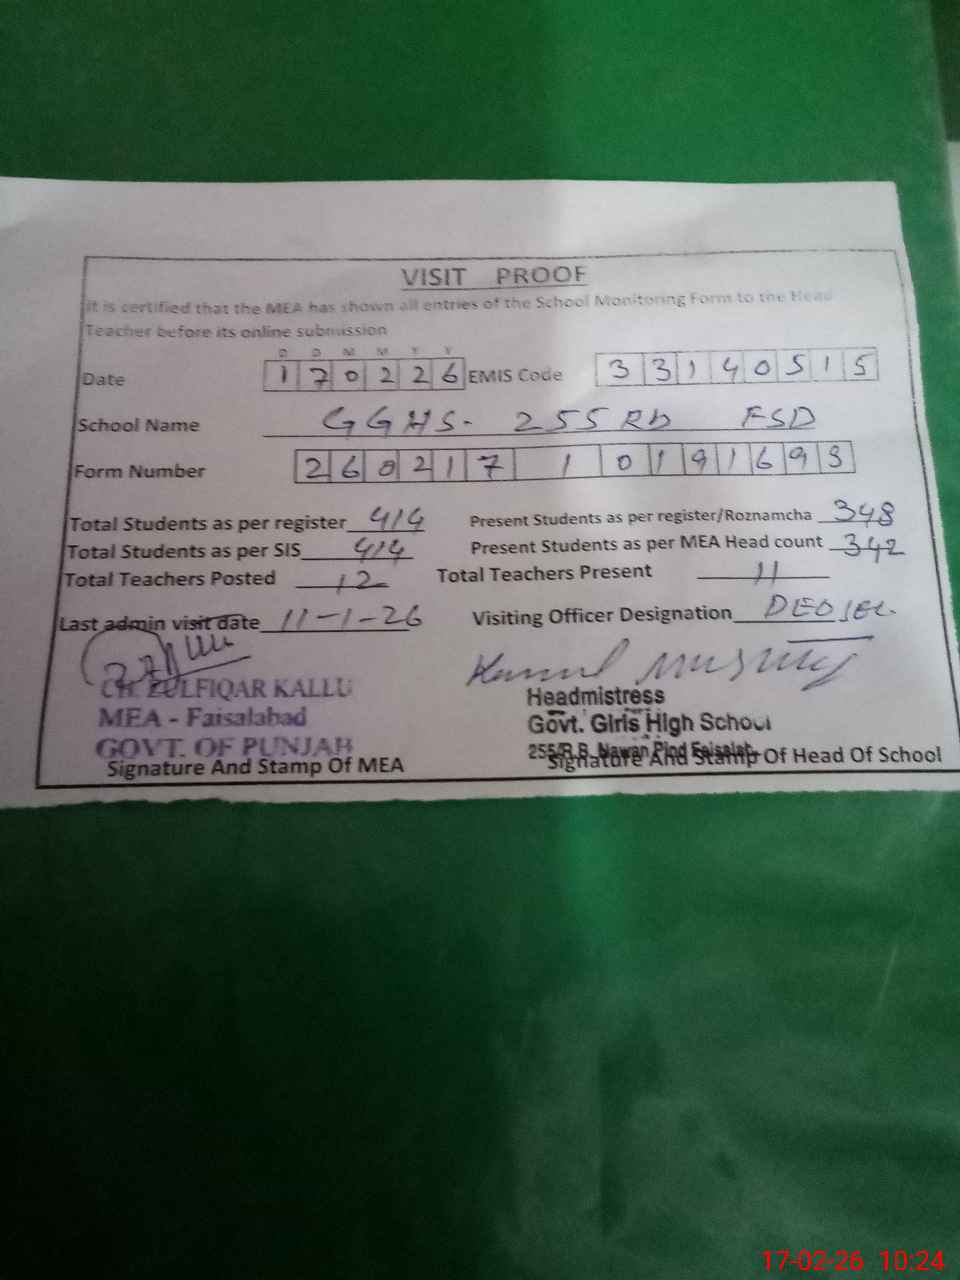 VISIT PROOF
It is certified that the MEA has shown all entries of the School Monitoring Form to the Head
Teacher before its online submission
D D M M Y Y
Date 170226 EMIS Code 33140515
School Name GGHS- 255 Rb FSD
Form Number 260217 1 0191693
Total Students as per register 414 Present Students as per register/Roznamcha 348
Total Students as per SIS 414 Present Students as per MEA Head count 342
Total Teachers Posted 12 Total Teachers Present 11
Last admin visit date 11-1-26 Visiting Officer Designation DEO
CH. ZULFIQAR KALLU
MEA - Faisalabad
GOVT. OF PUNJAB
Signature And Stamp Of MEA
Headmistress
Govt. Girls High School
255/R.B. Nawan Pind
Signature And Stamp Of Head Of School
17-02-26 10:24